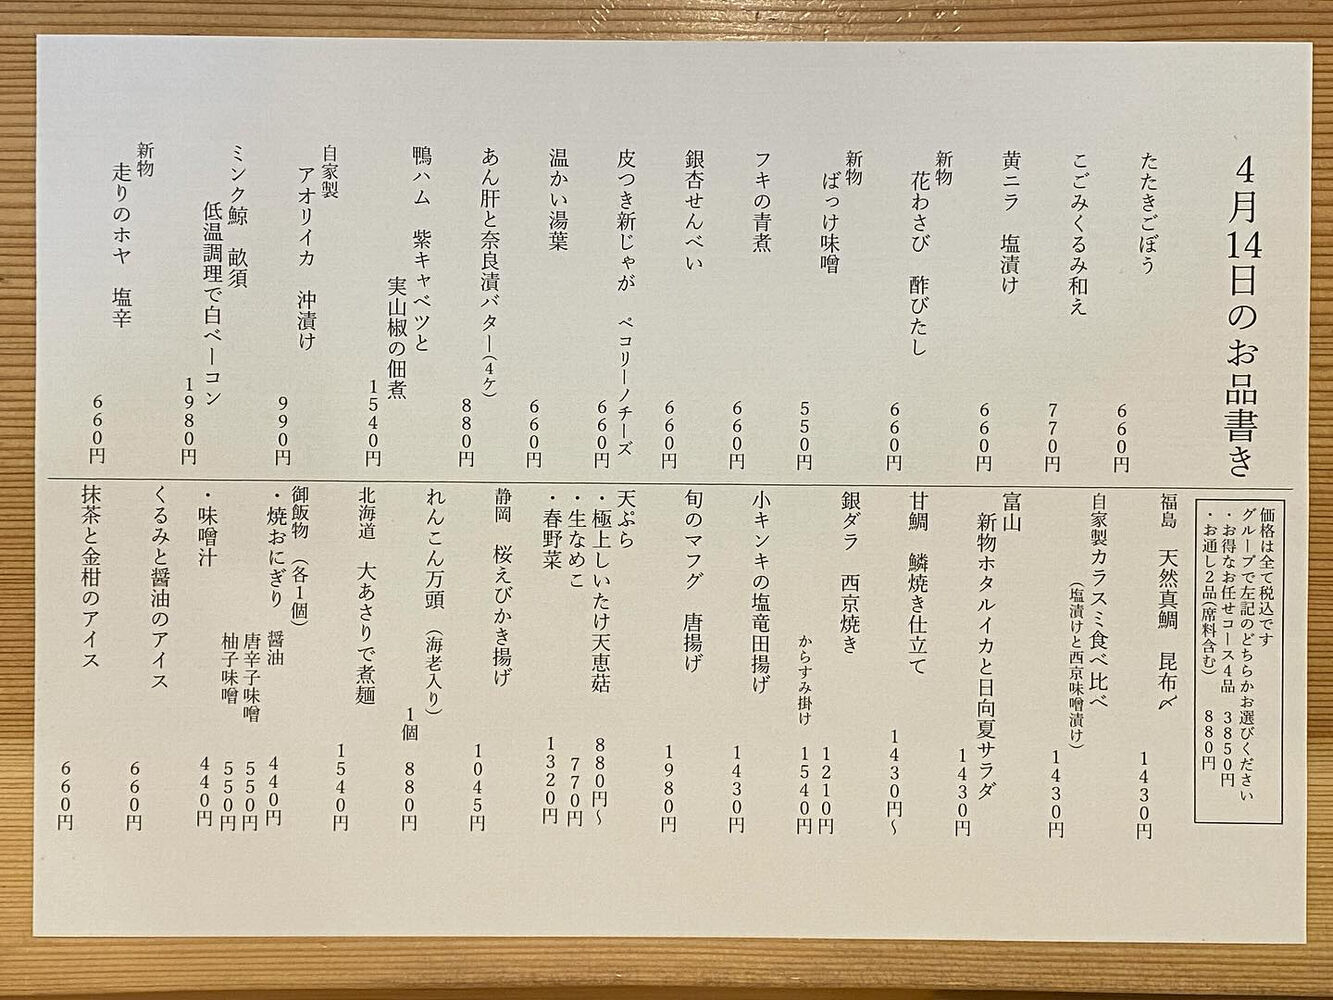 4月14日のお品書き
たたきごぼう
660円
こごみくるみ和え
770円
黄ニラ 塩漬け
660円
新物
花わさび 酢びたし
660円
新物
ばっけ味噌
550円
フキの青煮
660円
銀杏せんべい
660円
皮つき新じゃが ペコリーノチーズ
660円
温かい湯葉
660円
あん肝と奈良漬バター(4ケ)
880円
鴨ハム 紫キャベツと
実山椒の佃煮
1540円
自家製
アオリイカ 沖漬け
990円
ミンク鯨 畝須
低温調理で白ベーコン
1980円
新物
走りのホヤ 塩辛
660円
価格は全て税込です
グループで左記のどちらかお選びください
・お得なお任せコース4品 3850円
・お通し2品(席料含む) 880円
福島 天然真鯛 昆布〆
1430円
自家製カラスミ食べ比べ
(塩漬けと西京味噌漬け)
1430円
富山
新物ホタルイカと日向夏サラダ
1430円
甘鯛 鱗焼き仕立て
1430円~
銀ダラ 西京焼き
1210円
からすみ掛け 1540円
小キンキの塩竜田揚げ
1430円
旬のマフグ 唐揚げ
1980円
天ぷら
・極上しいたけ天恵菇 880円~
・生なめこ 770円
・春野菜 1320円
静岡 桜えびかき揚げ
1045円
れんこん万頭 (海老入り)
1個 880円
北海道 大あさりで煮麺
1540円
御飯物 (各1個)
・焼おにぎり 醤油 440円
唐辛子味噌 550円
柚子味噌 550円
・味噌汁 440円
くるみと醤油のアイス
660円
抹茶と金柑のアイス
660円